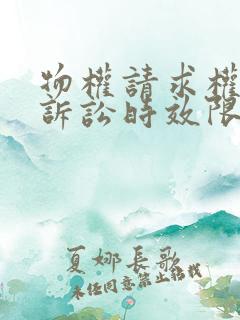 物權請求權
訴訟時效限
夏娜長歌
未经同意禁止转载